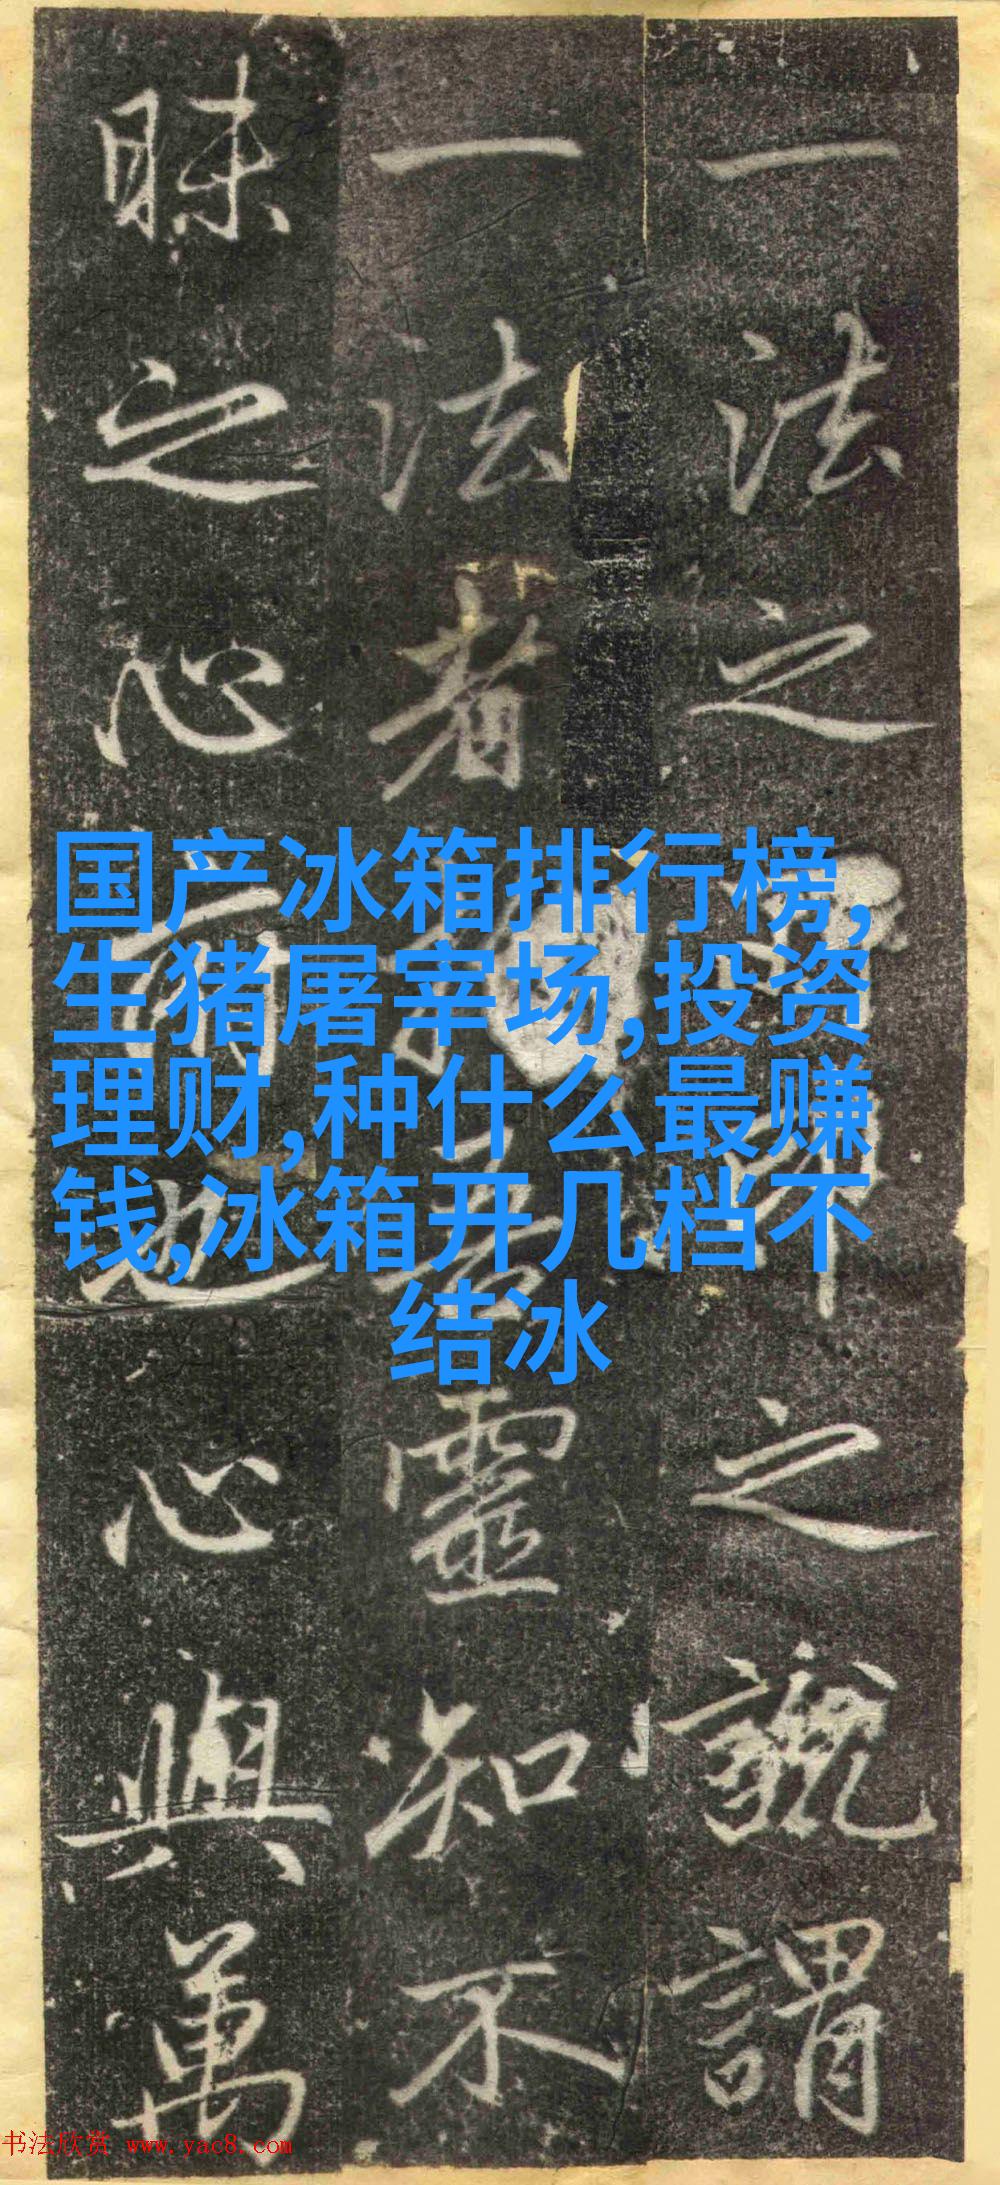 一法之之謂
一法者靈知不
昧之心也心與萬
国产冰箱排行榜,
生猪屠宰场,投资
理财,种什么最赚
钱,冰箱开几档不
结冰
书法欣赏 www.yac8.com